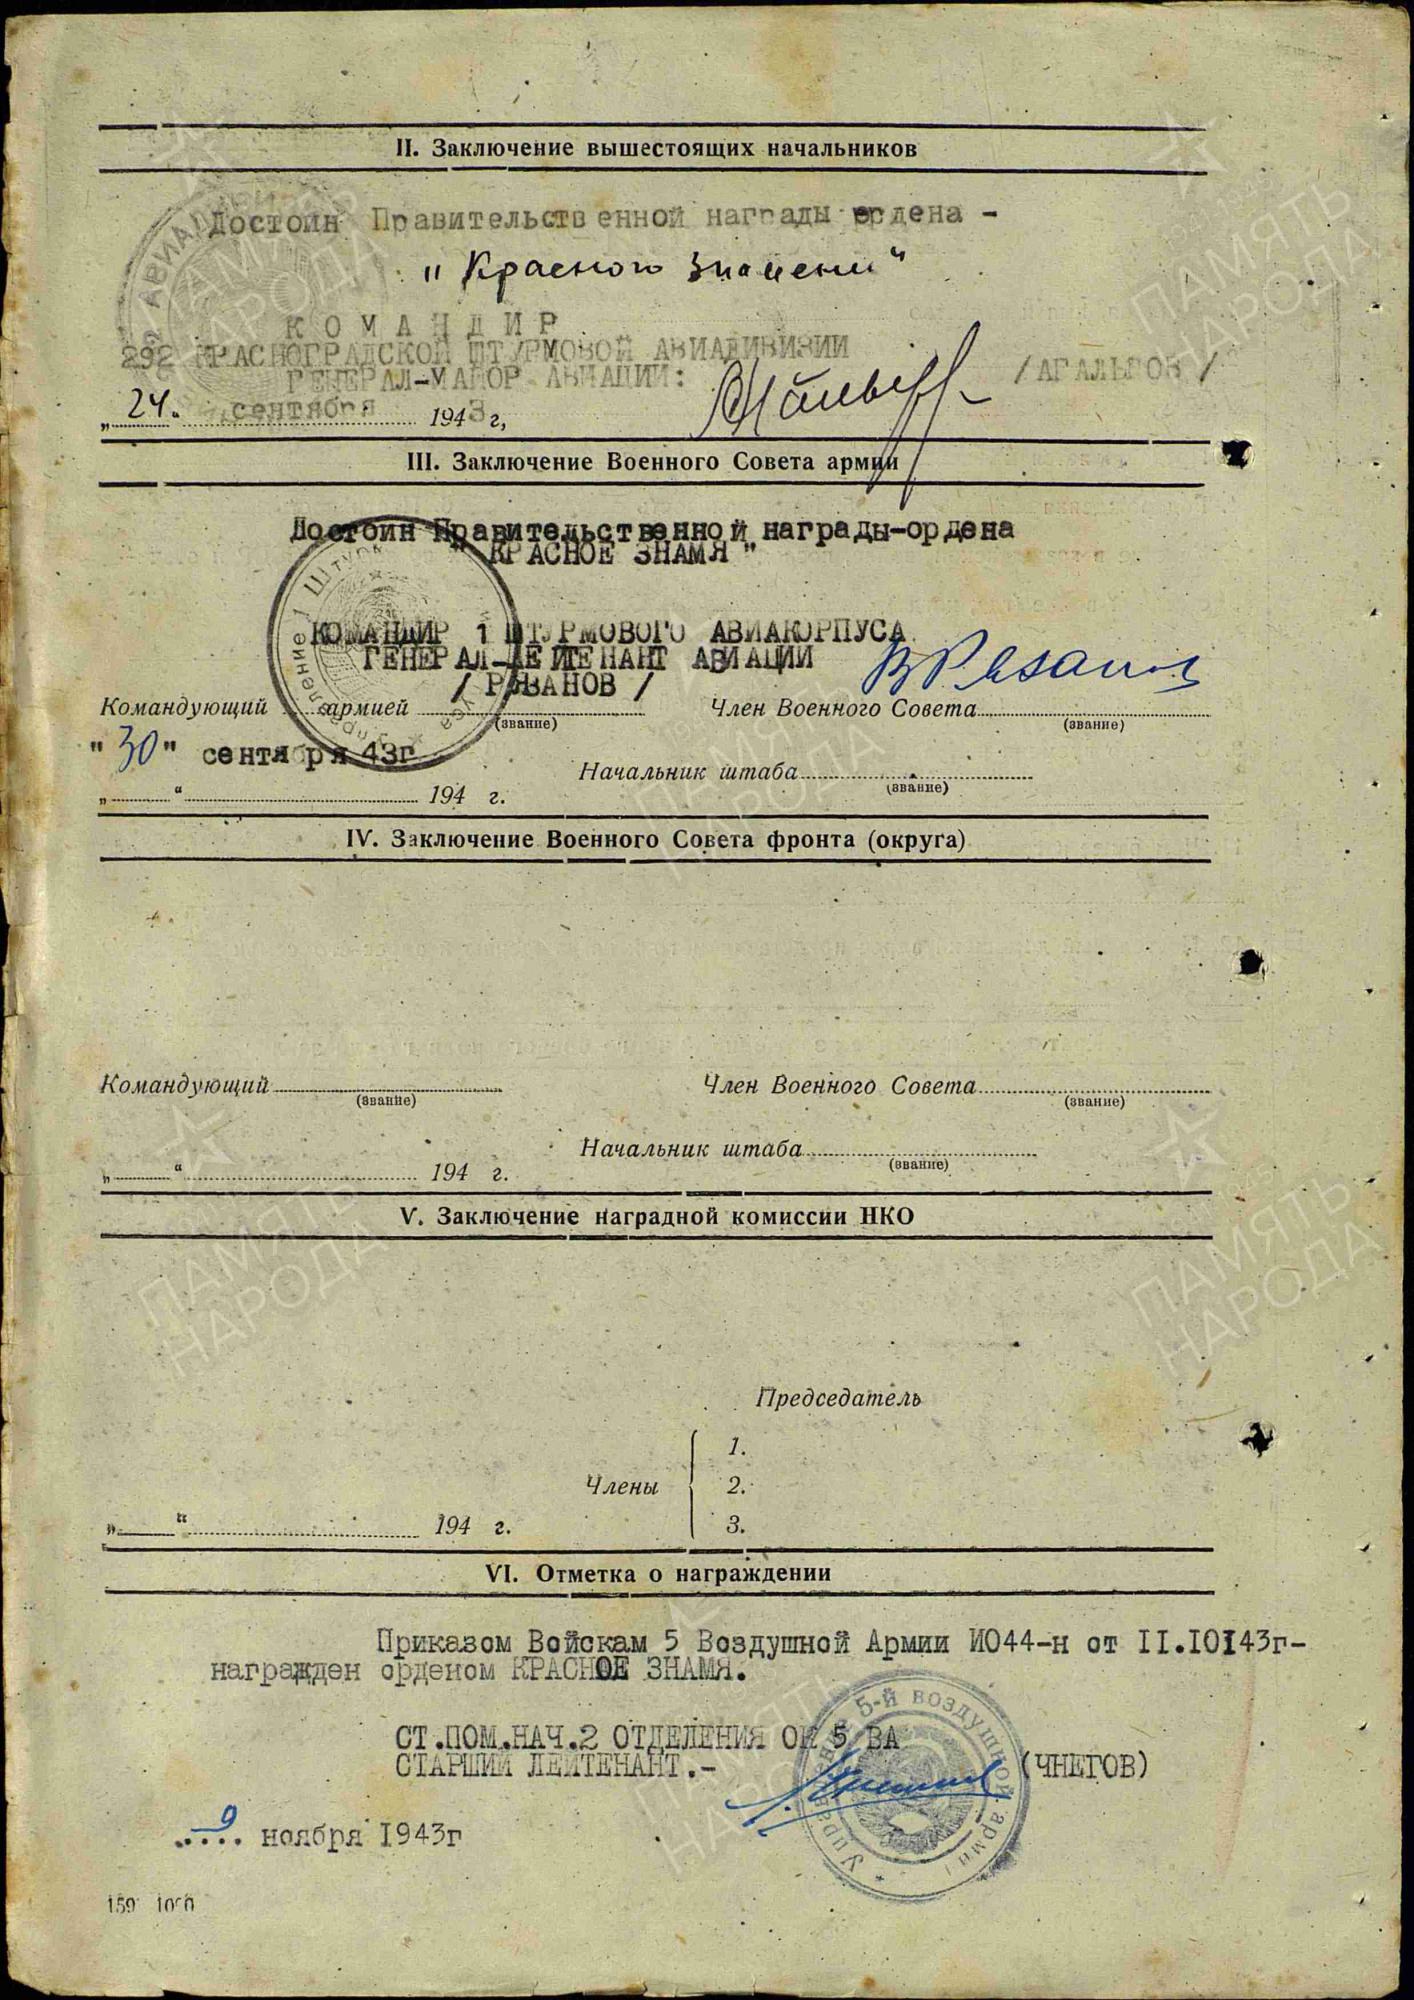 II. Заключение вышестоящих начальников
Достоин Правительственной награды ордена –
"Красного Знамени"
КОМАНДИР
292 КРАСНОГРАДСКОЙ ШТУРМОВОЙ АВИАДИВИЗИИ
ГЕНЕРАЛ-МАЙОР АВИАЦИИ: /АГАЛЬЦОВ/
„24" сентября 1943 г,
III. Заключение Военного Совета армии
Достоин Правительственной награды-ордена
"КРАСНОЕ ЗНАМЯ"
КОМАНДИР 1 ШТУРМОВОГО АВИАКОРПУСА
ГЕНЕРАЛ-ЛЕЙТЕНАНТ АВИАЦИИ
/ РЯЗАНОВ /
В Рязанов
Командующий армией Член Военного Совета
(звание) (звание)
"30" сентября 43г
Начальник штаба
(звание)
„ “ 194 г.
IV. Заключение Военного Совета фронта (округа)
Командующий Член Военного Совета
(звание) (звание)
Начальник штаба
(звание)
„ “ 194 г.
V. Заключение наградной комиссии НКО
Председатель
1.
Члены 2.
3.
„ “ 194 г.
VI. Отметка о награждении
Приказом Войскам 5 Воздушной Армии И044-н от II.IOI43г-
награжден орденом КРАСНОЕ ЗНАМЯ.
СТ.ПОМ.НАЧ.2 ОТДЕЛЕНИЯ ОК 5 ВА
СТАРШИЙ ЛЕЙТЕНАНТ.- (ЧНЕГОВ)
Управление 5-й воздушной армии
9 ноября I943г
ПАМЯТЬ
НАРОДА